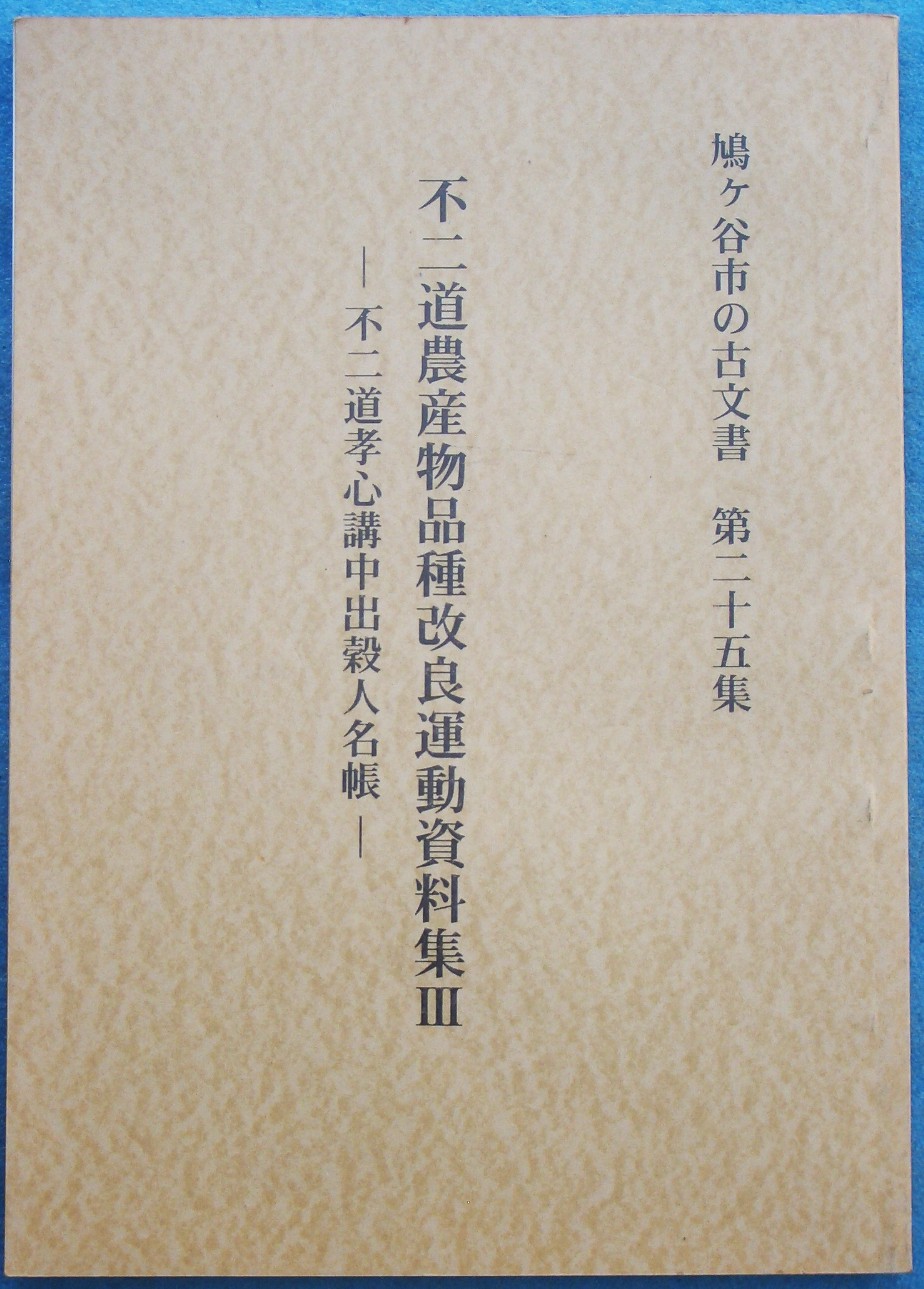 鳩ヶ谷市の古文書　第二十五集
不二道農産物品種改良運動資料集Ⅲ
―不二道孝心講中出穀人名帳―